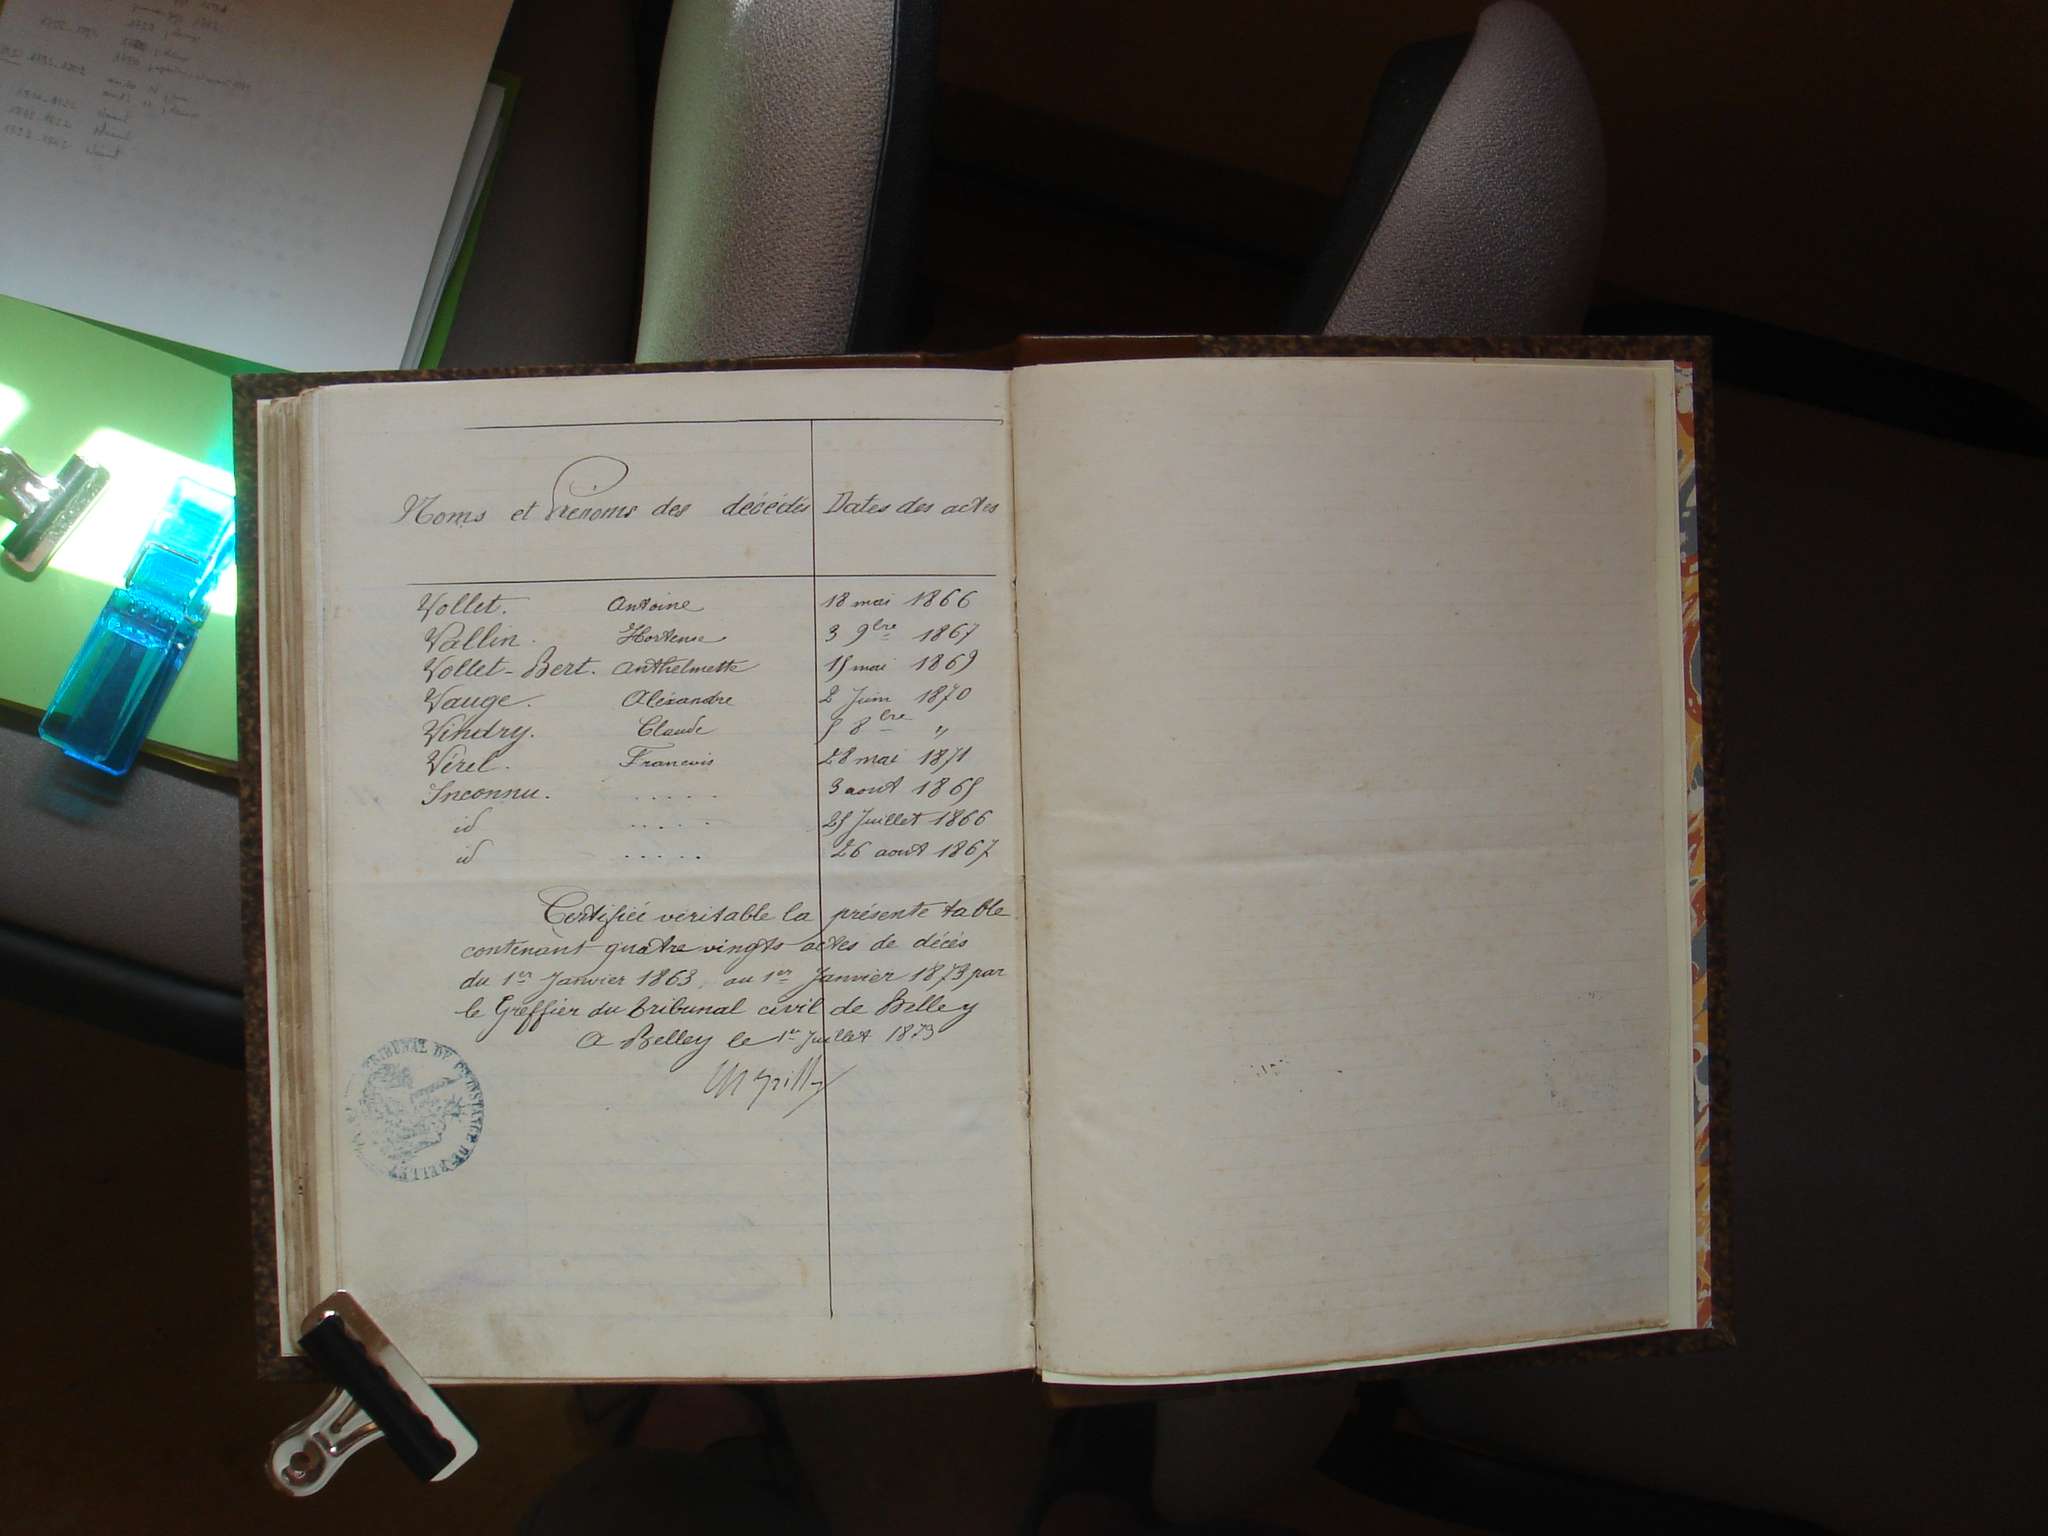 Noms et Prénoms des décédés Dates des actes
Vollet. Antoine 18 mai 1866
Vallin. Hortense 3 9bre 1867
Vollet-Bert. Anthelmette 15 mai 1869
Vauge. Alexandre 2 Juin 1870
Vindry. Claude 5 8bre "
Virel. Francois 28 mai 1871
Inconnu. ..... 3 aout 1865
id ..... 25 Juillet 1866
id ..... 26 aout 1867
Certifiée véritable la présente table
contenant quatre vingts actes de décès
du 1er Janvier 1863, au 1er Janvier 1873 par
le Greffier du tribunal civil de Belley
A Belley le 1er Juillet 1873
TRIBUNAL DE INSTANCE DE BELLEY